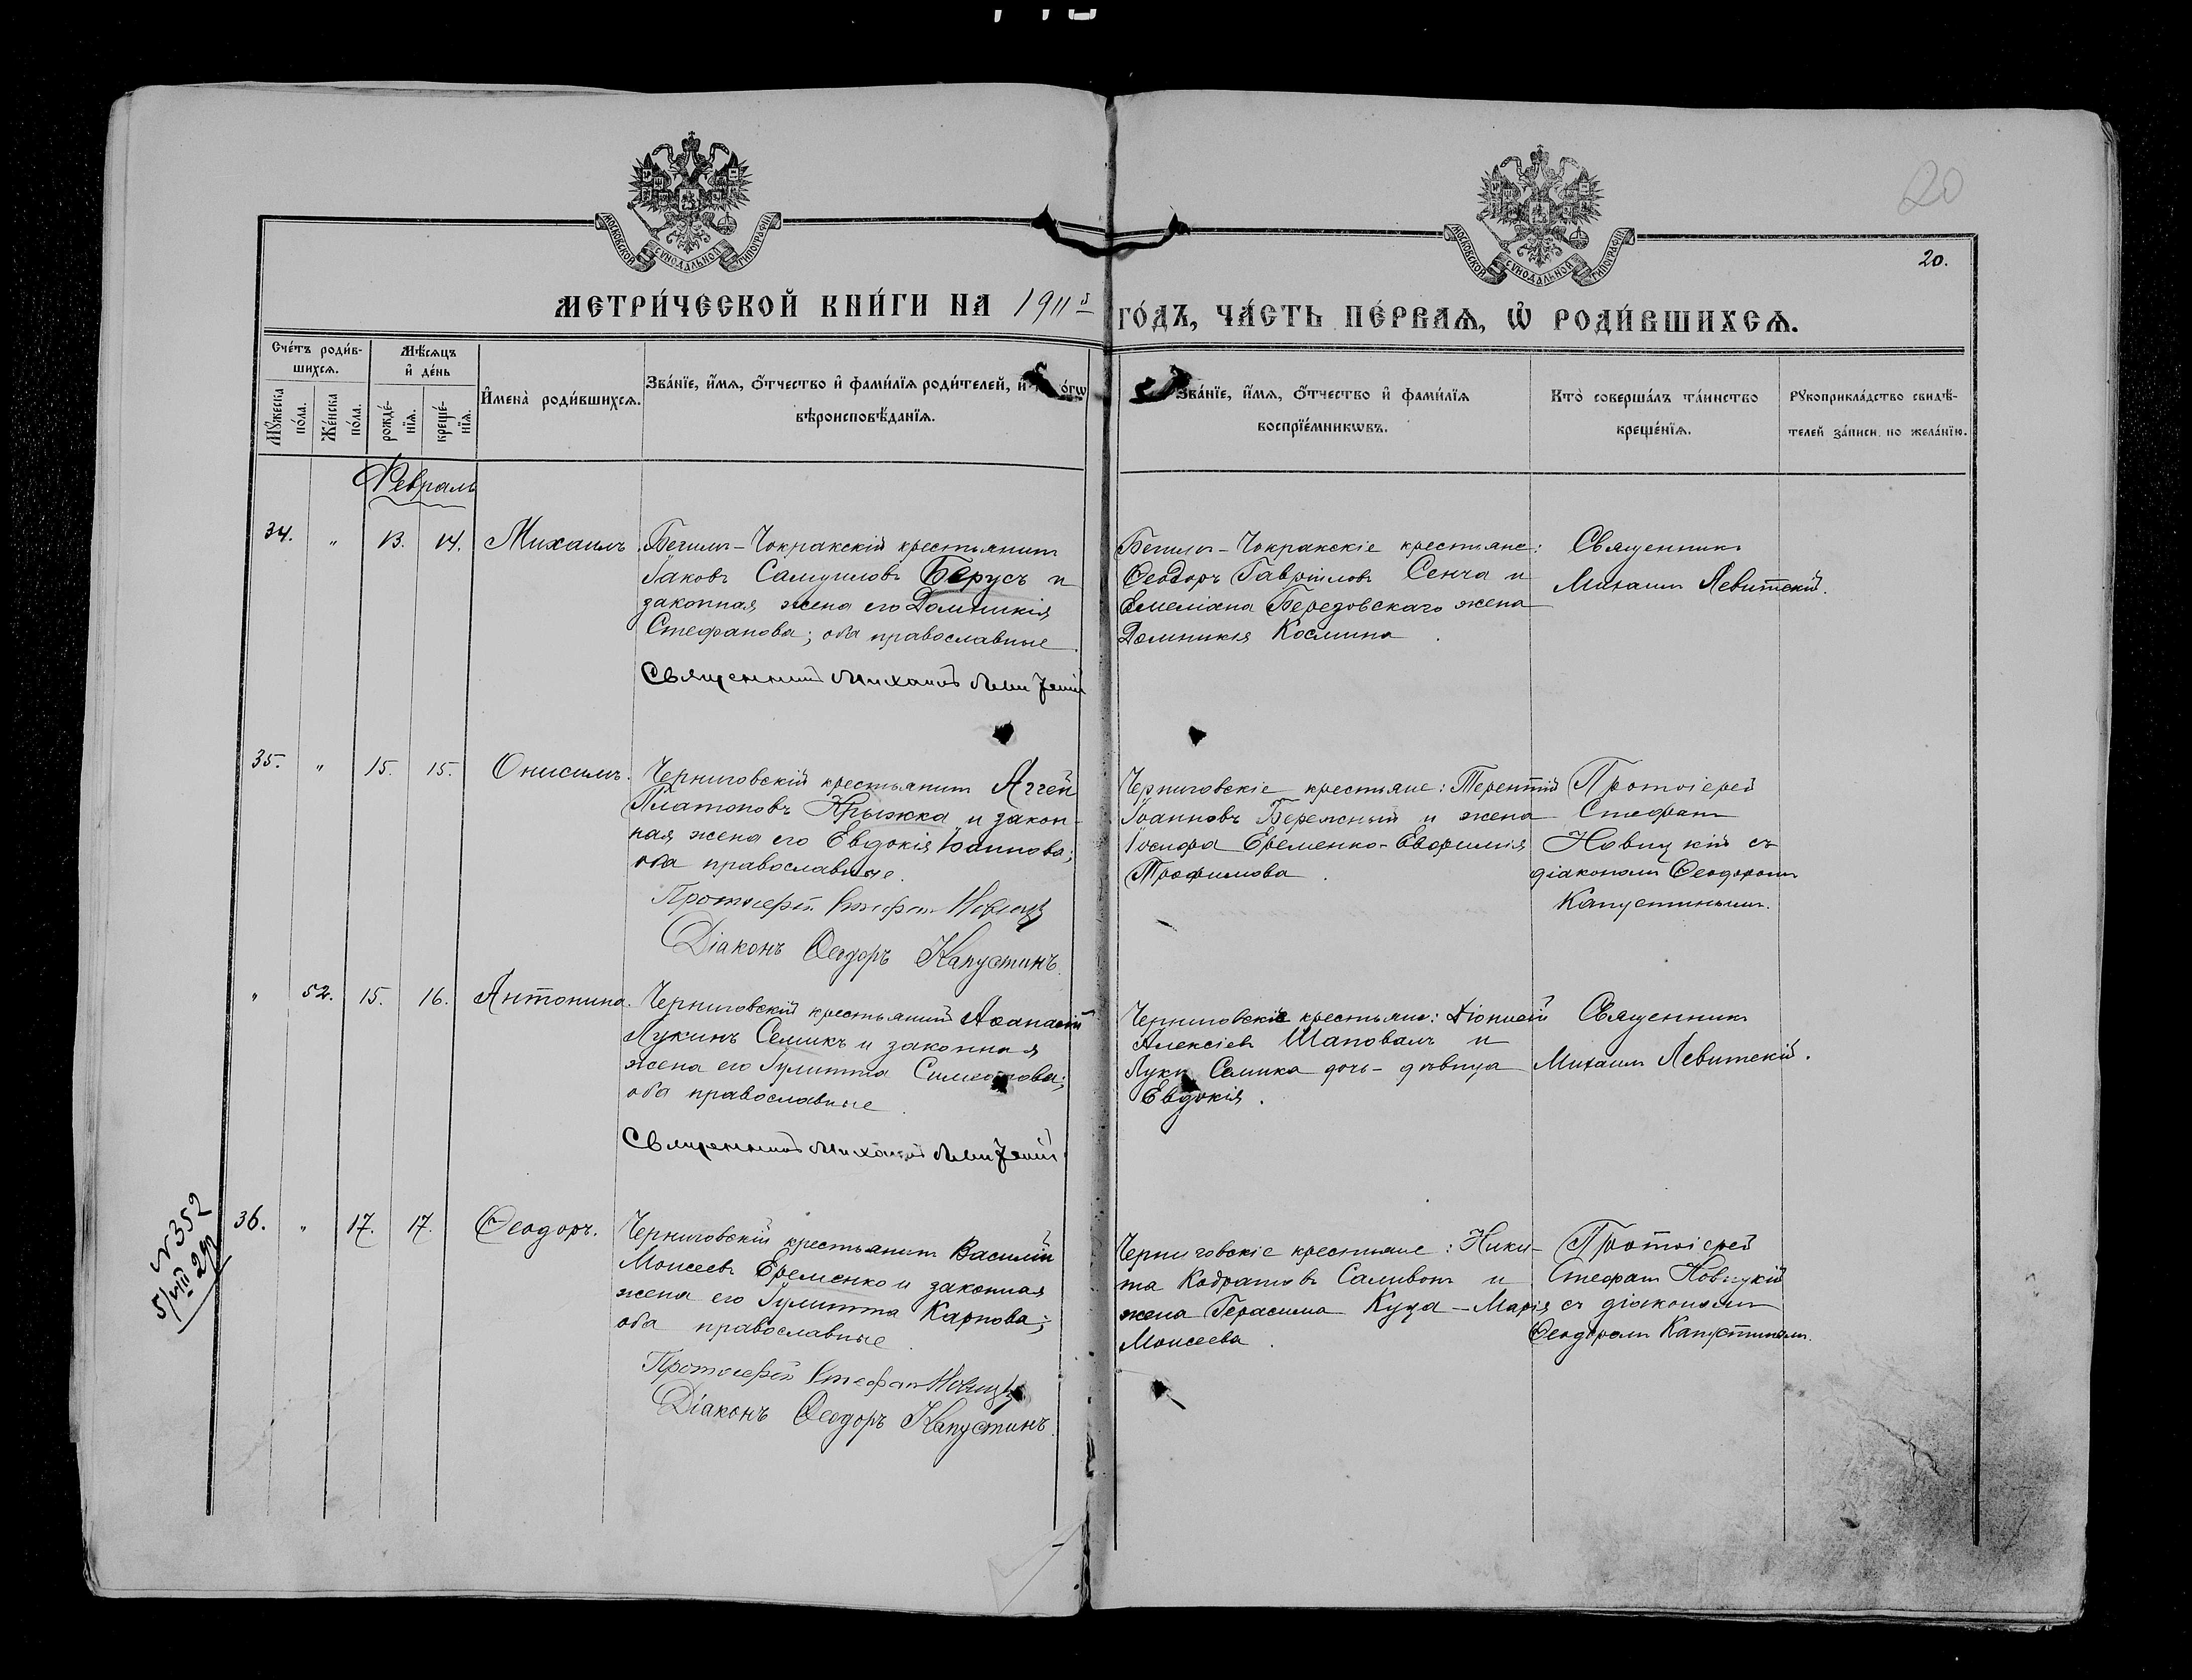 20
МОСКОВСКОЙ СѴНОДАЛЬНОЙ ТИПОГРАФІИ
МОСКОВСКОЙ СѴНОДАЛЬНОЙ ТИПОГРАФІИ
20.
МЕТРИ́ЧЕСКОЙ КНИ́ГИ НА 1911й
ГО́ДЪ, ЧА́СТЬ ПЕ́РВАѦ, Ѡ҆ РОДИ́ВШИХСѦ.
Сче́тъ роди́в-
шихсѧ.
Мꙋ́жеска по́ла.
Же́нска по́ла.
Мѣ́сѧцъ
и҆ де́нь
рожде́-
нїѧ.
креще́-
нїѧ.
И҆мена̀ роди́вшихсѧ.
Зва́нїе, и҆́мѧ, о҆́тчество и҆ фами́лїѧ роди́телей, и҆
вѣроисповѣ́данїѧ.
Зва́нїе, и҆́мѧ, о҆́тчество и҆ фами́лїѧ
воспрїе́мникѡвъ.
Кто̀ соверша́лъ та́инство
креще́нїѧ.
Рꙋкоприкла́дство свидѣ́-
телей за́писи по жела́нїю.
Февраль
34. " 13. 14. Михаилъ.
Бегимъ-Чокракскій крестьянинъ
Іаковъ Самуиловъ Берусъ и
законная жена его Домникія
Стефанова; оба православные.
Священникъ Михаилъ Левитскій
Бегимъ-Чокракскіе крестьяне:
Ѳеодоръ Гавріиловъ Сенча и
Емеліана Березовскаго жена
Домникія Космина.
Священникъ
Михаилъ Левитскій.
35. " 15. 15. Онисимъ.
Черниговскій крестьянинъ Аггей
Платоновъ Крыжка и закон-
ная жена его Евдокія Іоаннова;
оба православные.
Протоіерей Стефанъ Новицкій
Діаконъ Ѳеодоръ Капустинъ.
Черниговскіе крестьяне: Терентій
Іоанновъ Бережный и жена
Іосифа Еременко-Евфимія
Трофимова.
Протоіерей
Стефанъ
Новицкій съ
діакономъ Ѳеодоромъ
Капустинымъ.
" 52. 15. 16. Антонина.
Черниговскій крестьянинъ Аѳанасій
Лукинъ Семикъ и законная
жена его Іулитта Симеонова;
оба православные.
Священникъ Михаилъ Левитскій
Черниговскіе крестьяне: Діонисій
Алексіевъ Шаповалъ и
Луки Семика дочь-дѣвица
Евдокія.
Священникъ
Михаилъ Левитскій.
№ 352
5/VIII 29
36. " 17. 17. Ѳеодоръ.
Черниговскій крестьянинъ Василій
Моисеевъ Еременко и законная
жена его Іулитта Карпова;
оба православные.
Протоіерей Стефанъ Новицкій
Діаконъ Ѳеодоръ Капустинъ.
Черниговскіе крестьяне: Ники-
та Кодратовъ Саливонъ и
жена Герасима Куца-Марія
Моисеева.
Протоіерей
Стефанъ Новицкій
съ діакономъ
Ѳеодоромъ Капустинымъ.